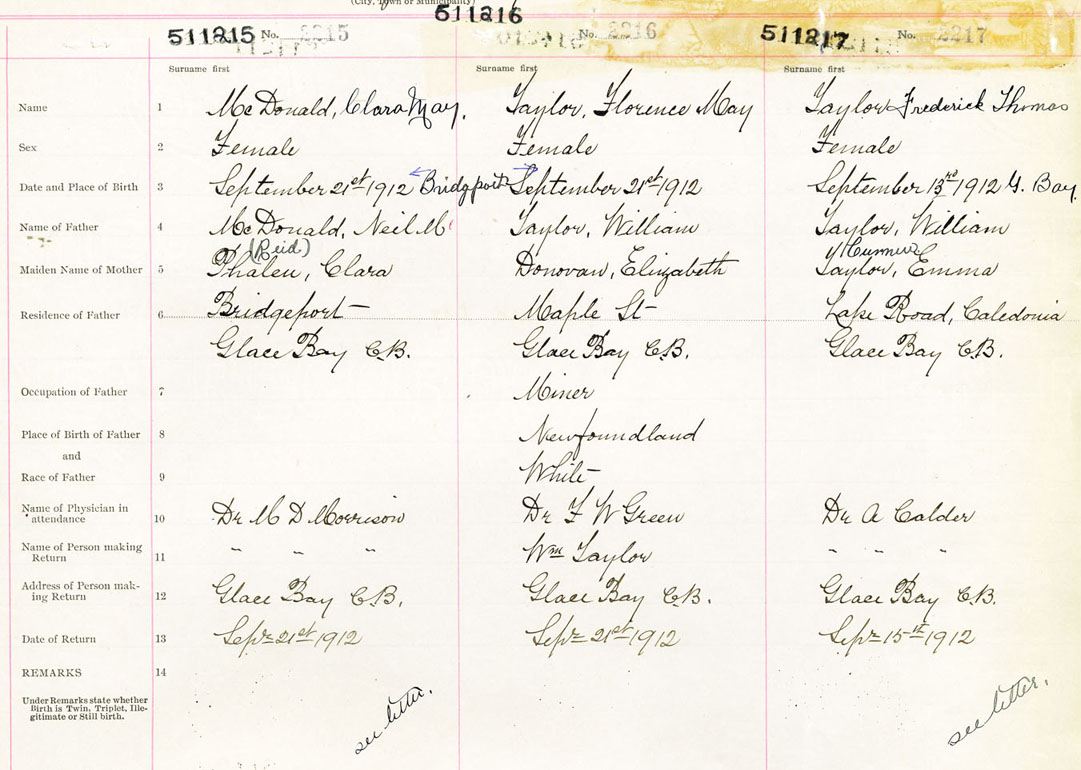 (City, Town or Municipality)
511215 No. 2215 511216 No. 2216 511217 No. 2217
Surname first Surname first Surname first
Name 1 McDonald, Clara May. Taylor, Florence May Taylor Frederick Thomas
Sex 2 Female Female Female
Date and Place of Birth 3 September 21st 1912 Bridgport September 21st 1912 September 13rd 1912 G. Bay
Name of Father 4 McDonald, Neil Mc Taylor, William Taylor, William
(Reid)
Maiden Name of Mother 5 Phalen, Clara Donovan, Elizabeth Taylor, Emma
Residence of Father 6 Bridgeport Maple St Lake Road, Caledonia
Glace Bay C.B. Glace Bay C.B. Glace Bay C.B.
Occupation of Father 7 Miner
Place of Birth of Father 8 Newfoundland
and
Race of Father 9 White
Name of Physician in attendance 10 Dr M D Morrison Dr F W Green Dr A Calder
Name of Person making Return 11 " " " Wm Taylor " " "
Address of Person making Return 12 Glace Bay C.B. Glace Bay C.B. Glace Bay C.B.
Date of Return 13 Sept 21st 1912 Sept 21st 1912 Sept 15th 1912
REMARKS 14
Under Remarks state whether
Birth is Twin, Triplet, Ille-
gitimate or Still birth.
see letter. see letter.